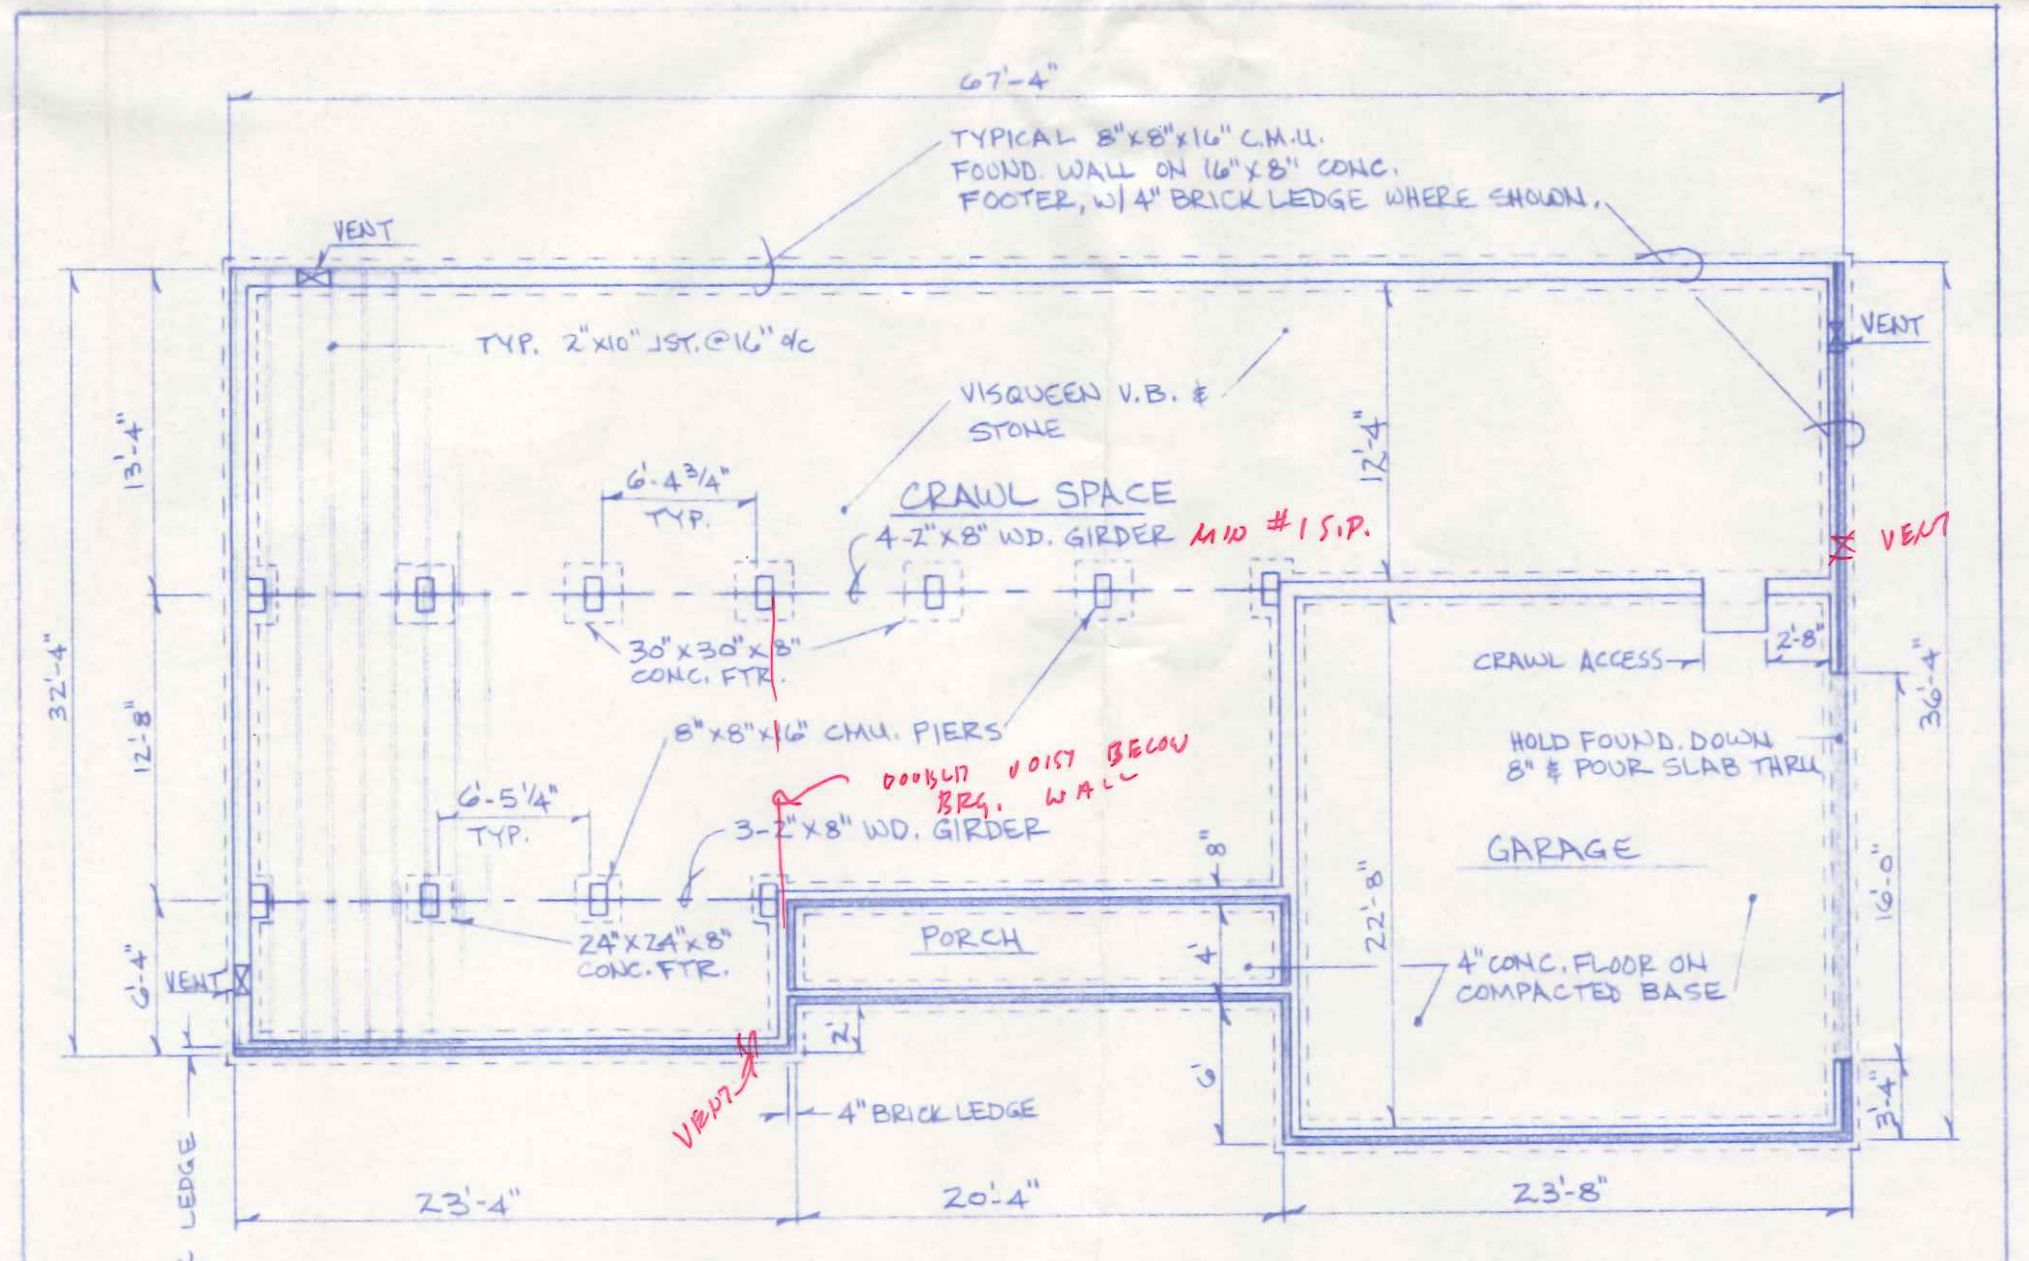 67'-4"
TYPICAL 8"x8"x16" C.M.U.
FOUND. WALL ON 16"x8" CONC.
FOOTER, W/ 4" BRICK LEDGE WHERE SHOWN.
VENT
VENT
TYP. 2"x10" JST. @ 16" o/c
VISQUEEN V.B. &
STONE
13'-4"
12'-4"
6'-4 3/4"
TYP.
CRAWL SPACE
4-2"x8" WD. GIRDER MIN #1 S.P.
VENT
30"x30"x8"
CONC. FTR.
CRAWL ACCESS
2'-8"
32'-4"
12'-8"
36'-4"
8"x8"x16" CMU. PIERS
HOLD FOUND. DOWN
8" & POUR SLAB THRU
DOUBLE JOIST BELOW
BRG. WALL
6'-5 1/4"
TYP.
3-2"x8" WD. GIRDER
8"
GARAGE
22'-8"
16'-0"
24"x24"x8"
CONC. FTR.
PORCH
4'
4" CONC. FLOOR ON
COMPACTED BASE
6'-4"
VENT
2'
6'
3'-4"
VENT
4" BRICK LEDGE
LEDGE
23'-4"
20'-4"
23'-8"